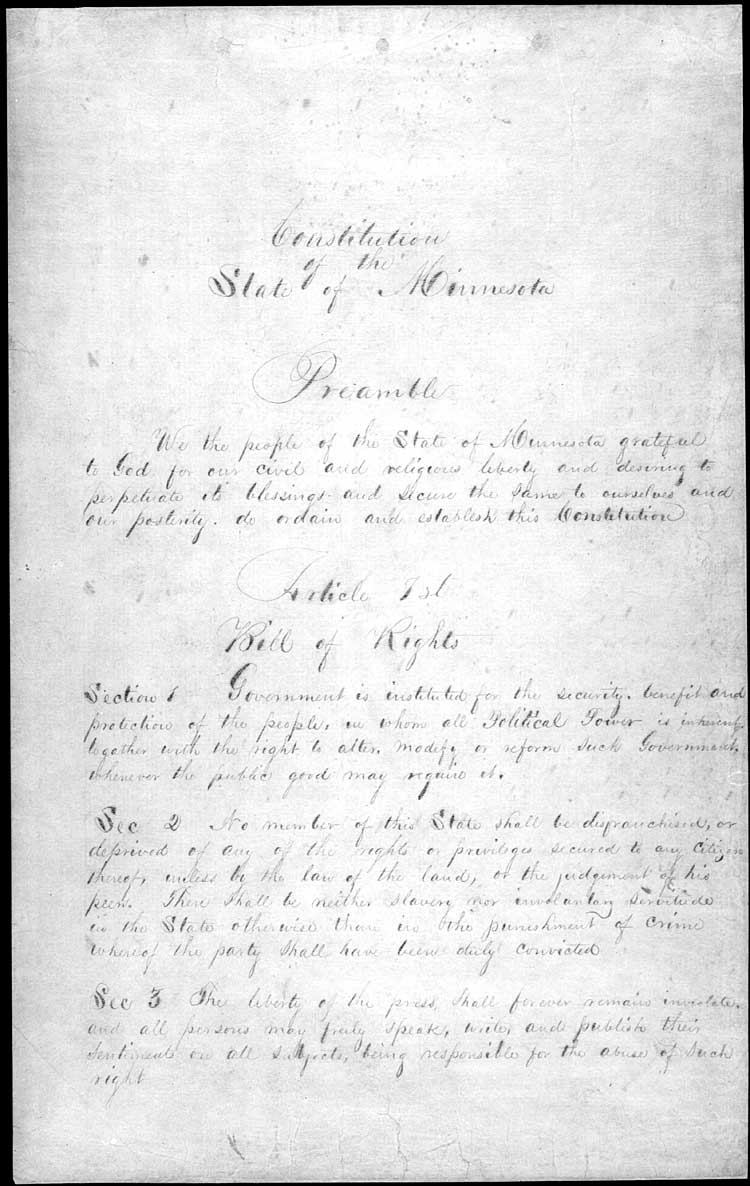 Constitution
of the
State of Minnesota
Preamble
We the people of the State of Minnesota grateful
to God, for our civil and religious liberty and desiring to
perpetuate its blessings and secure the same to ourselves and
our posterity. do ordain and establish this Constitution
Article 1st
Bill of Rights
Section 1 Government is instituted for the security, benefit and
protection of the people, in whom all Political Power is inherent
together with the right to alter, modify or reform such Government,
whenever the public good may require it.
Sec 2 No member of this State shall be disfranchised, or
deprived of any of the rights or privileges secured to any citizen
thereof, unless by the law of the land, or the judgement of his
peers. There shall be neither slavery nor involuntary servitude
in the State otherwise than in the punishment of crime
whereof the party shall have been duly convicted
Sec 3 The liberty of the press shall forever remain inviolate,
and all persons may freely speak, write, and publish their
sentiments on all subjects, being responsible for the abuse of such
right